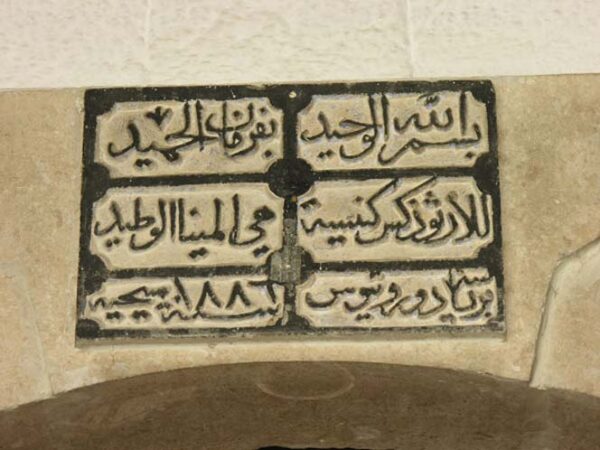 بسم الله الوحيد بفرمان الحميد
للأرثوذكس كنيسة هي المينا الوطيد
برئاسة دوروثيوس سنة ١٨٨٦ مسيحية